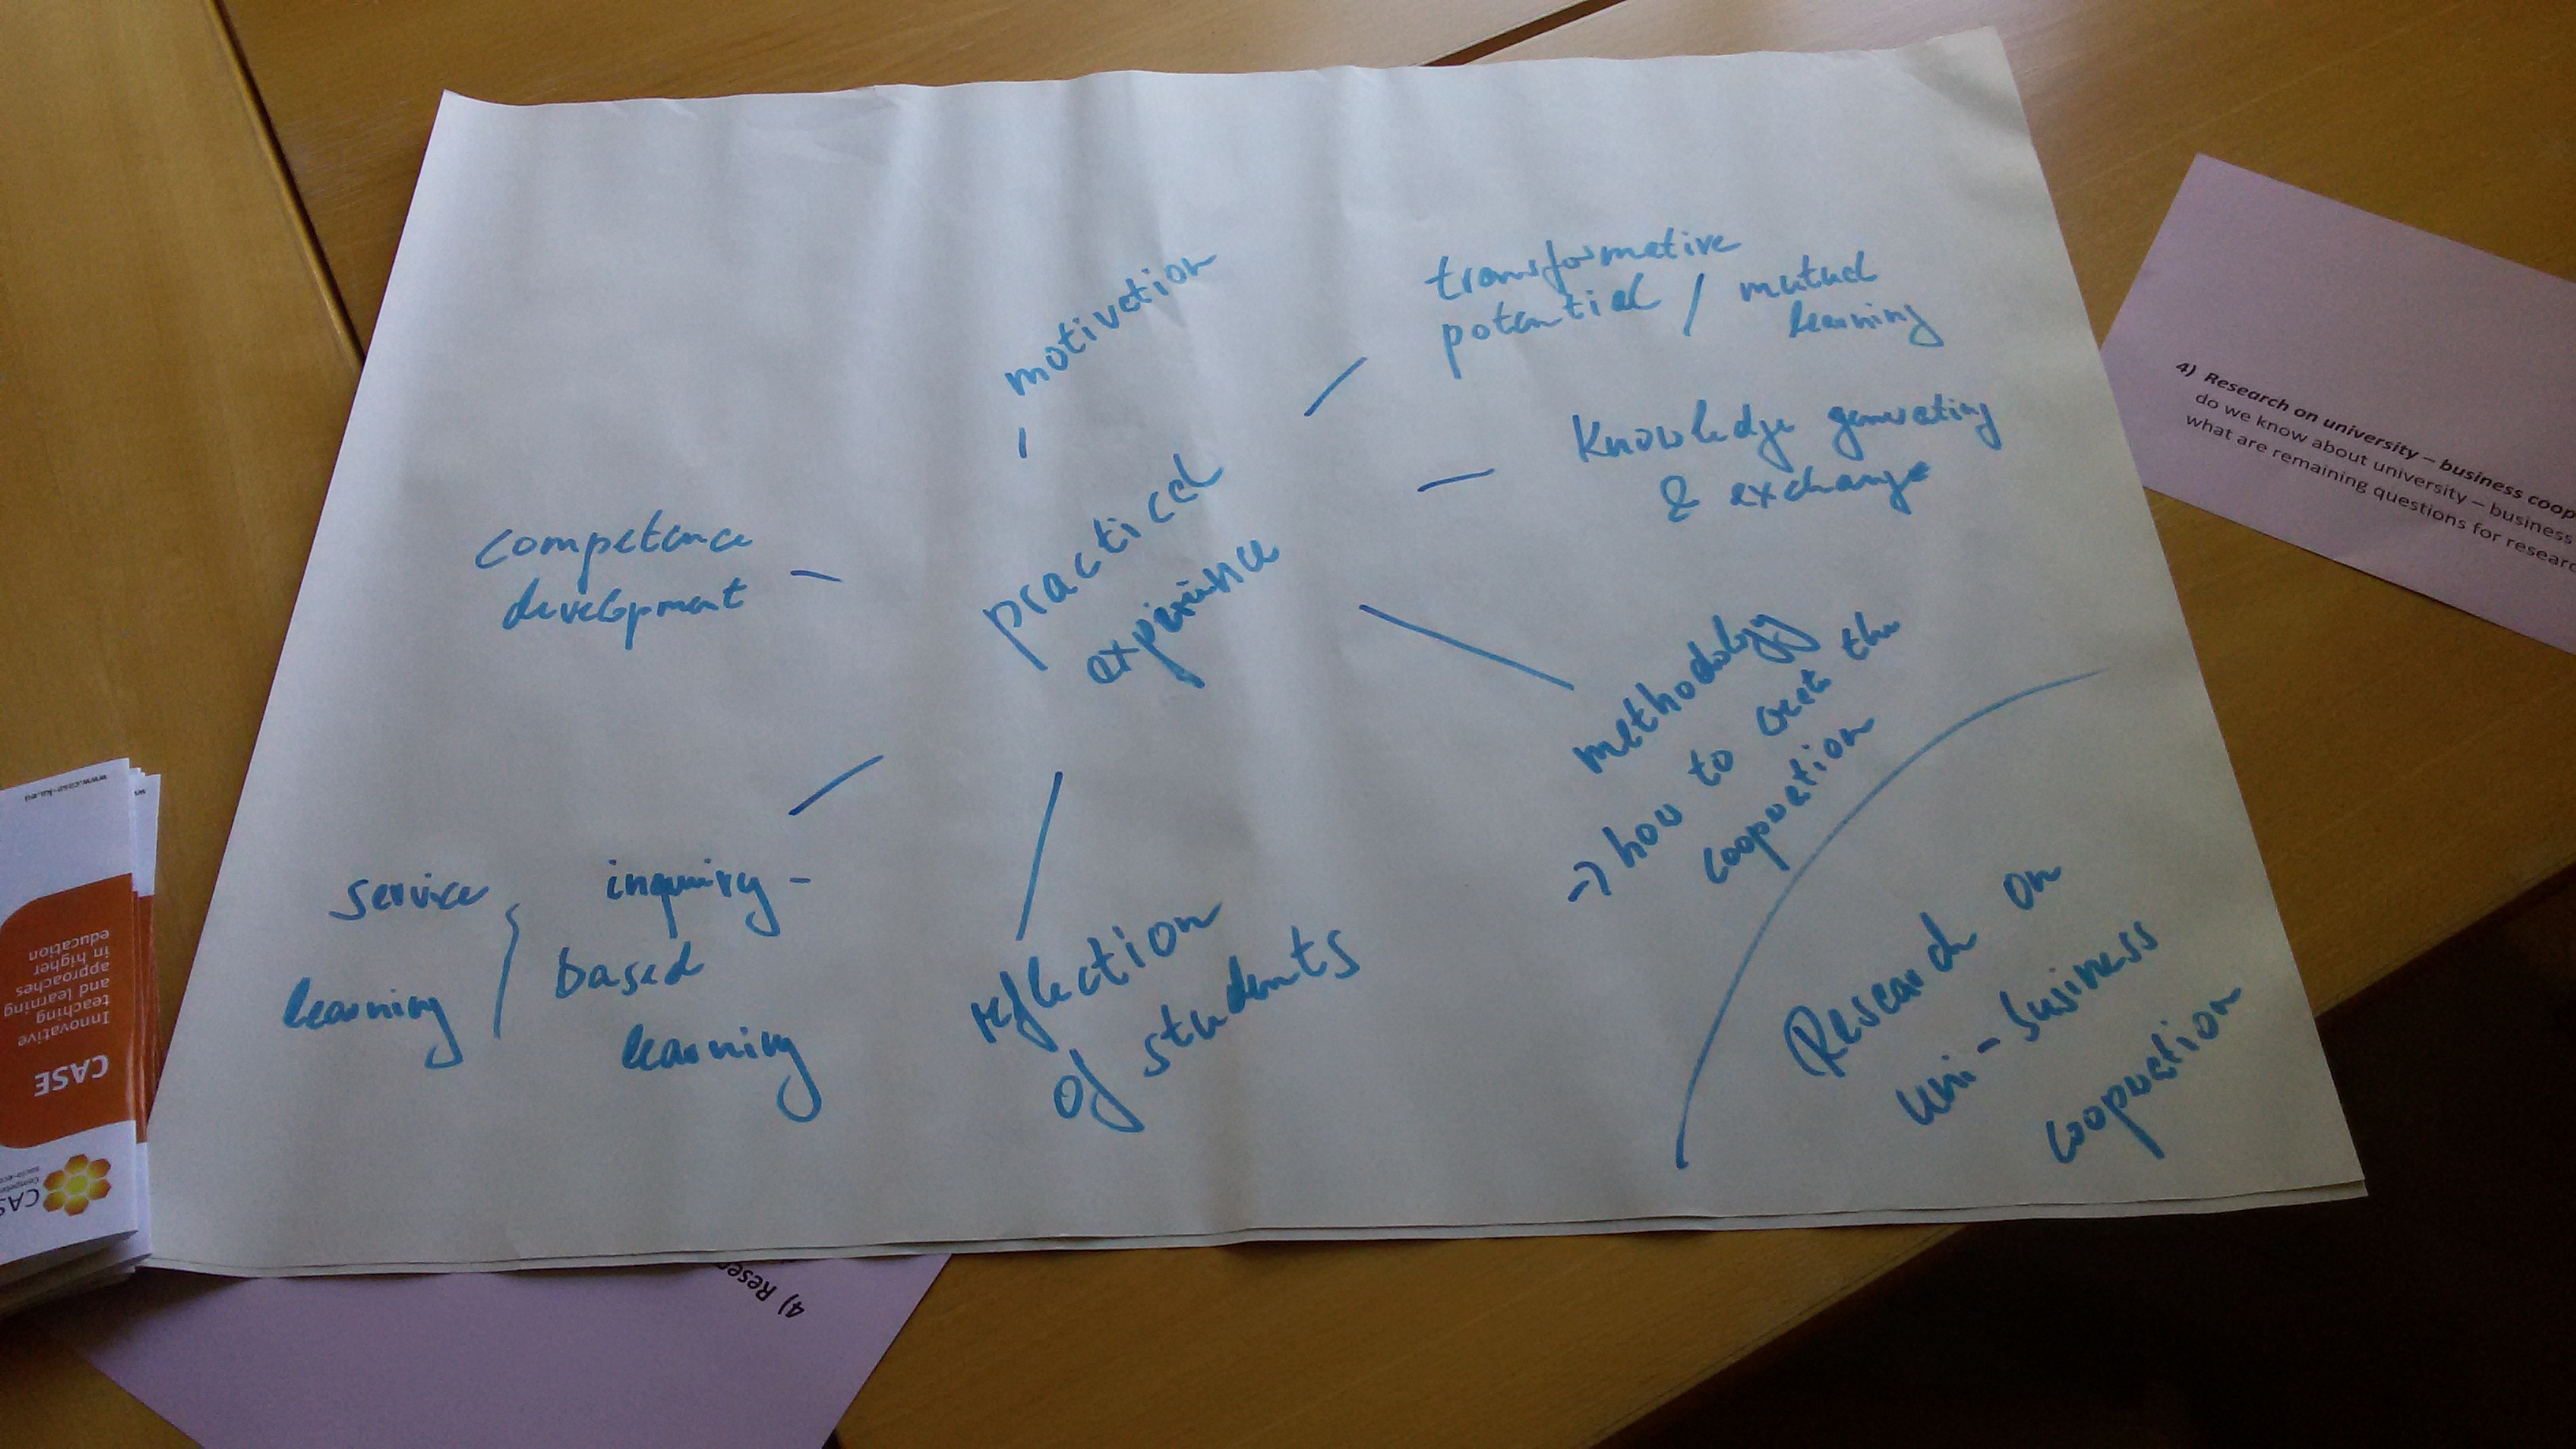 motivation
transformative
potential / mutual
learning
Knowledge generating
& exchange
practical
experience
competence
development
methodology
→ how to the
cooperation
service
learning
inquiry-
based
learning
reflection
of students
Research on
uni-business
cooperation
4) Research on university – business coop
do we know about university – business
what are remaining questions for researc
www.case-ka.eu
Innovative
teaching
and learning
approaches
in higher
education
CASE
CAS
4) Resea